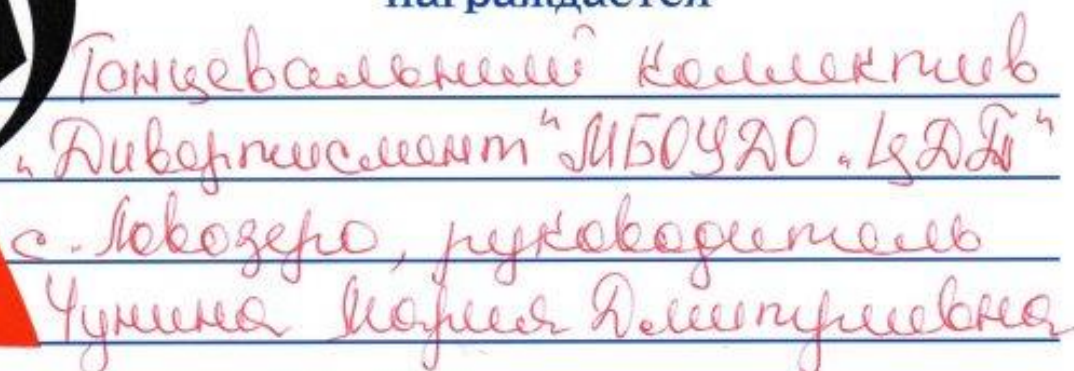 награждается
Танцевальный коллектив
"Дивертисмент" МБОУДО "ЦДТ"
с. Ловозеро, руководитель
Чунина Мария Дмитриевна